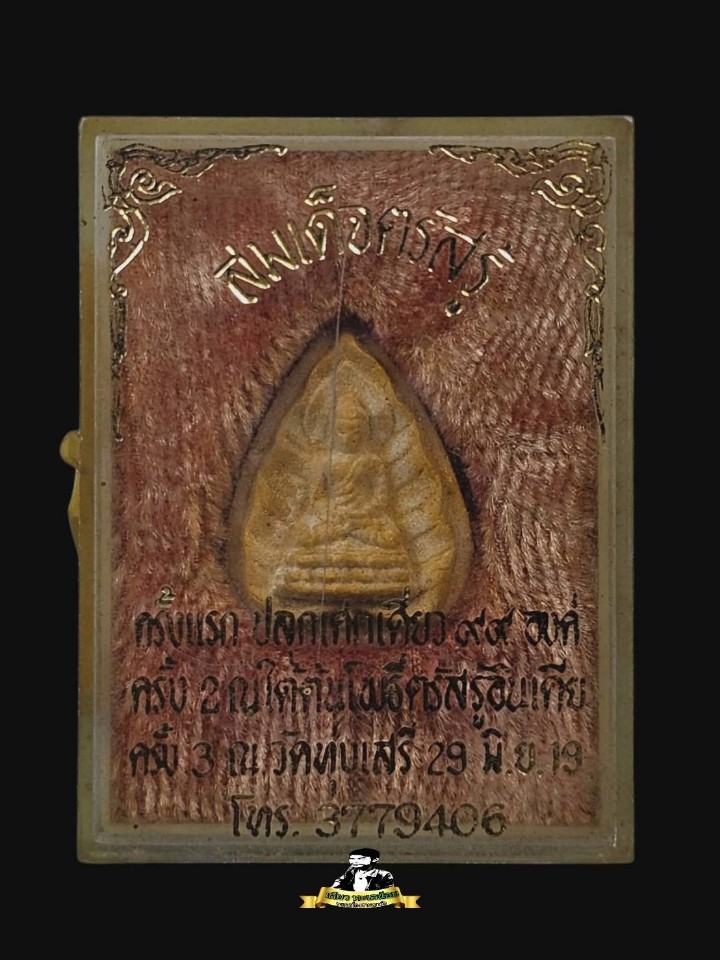 สมเด็จตรัสรู้
ครั้งแรก ปลุกเศกเดี่ยว ๙๙ องค์
ครั้ง 2 ณ ใต้ต้นโพธิ์ตรัสรู้อินเดีย
ครั้ง 3 ณ วัดทุ่งเสรี 29 มิ.ย. 19
โทร. 3779406